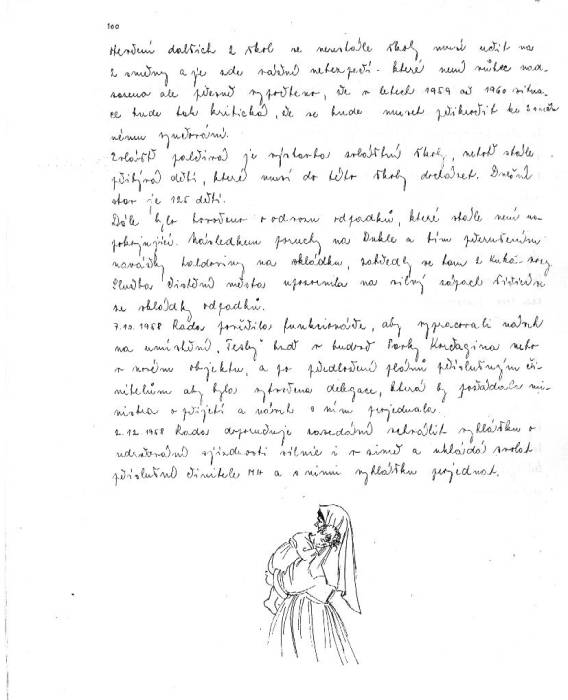 100
dalších 2 škol se neustále školy musí učit na
2 směny a je zde vážné nebezpečí. které není nad-
sazeno ale přesně vypočteno, že v letech 1959 až 1960 situa-
ce bude tak kritická, že se bude muset přikročit ke
němu vyučování.
Zvláště palčivá je výstavba zvláštní školy, neboť stále
přibývá dětí, které musí do této školy docházet. Dnešní
stav je 125 dětí.
Dále bylo hovořeno o odvozu odpadků, které stále není us-
pokojující. Následkem poruchy na Dukle a tím přerušením
navážky haldoviny na skládku, zahvězdy se tam 2
Služba čistění města upozornila na silný zápach šířící se
ze skládky odpadků.
7.10.1958 Rada pověřila funkcionáře, aby vypracovali návrh
na umístění "Tesly" buď v budově Parky nebo
v novém objektu, a po předložení plánů příslušným či-
nitelům aby byla vytvořena delegace, která by požádala mi-
nistra o přijetí a návrh s ním projednala.
2.12.1958 Rada doporučuje zasedání schválit vyhlášku o
udržování sjízdnosti silnic i v zimě a ukládá svolat
příslušné činitele MH a s nimi vyhlášku projednat.